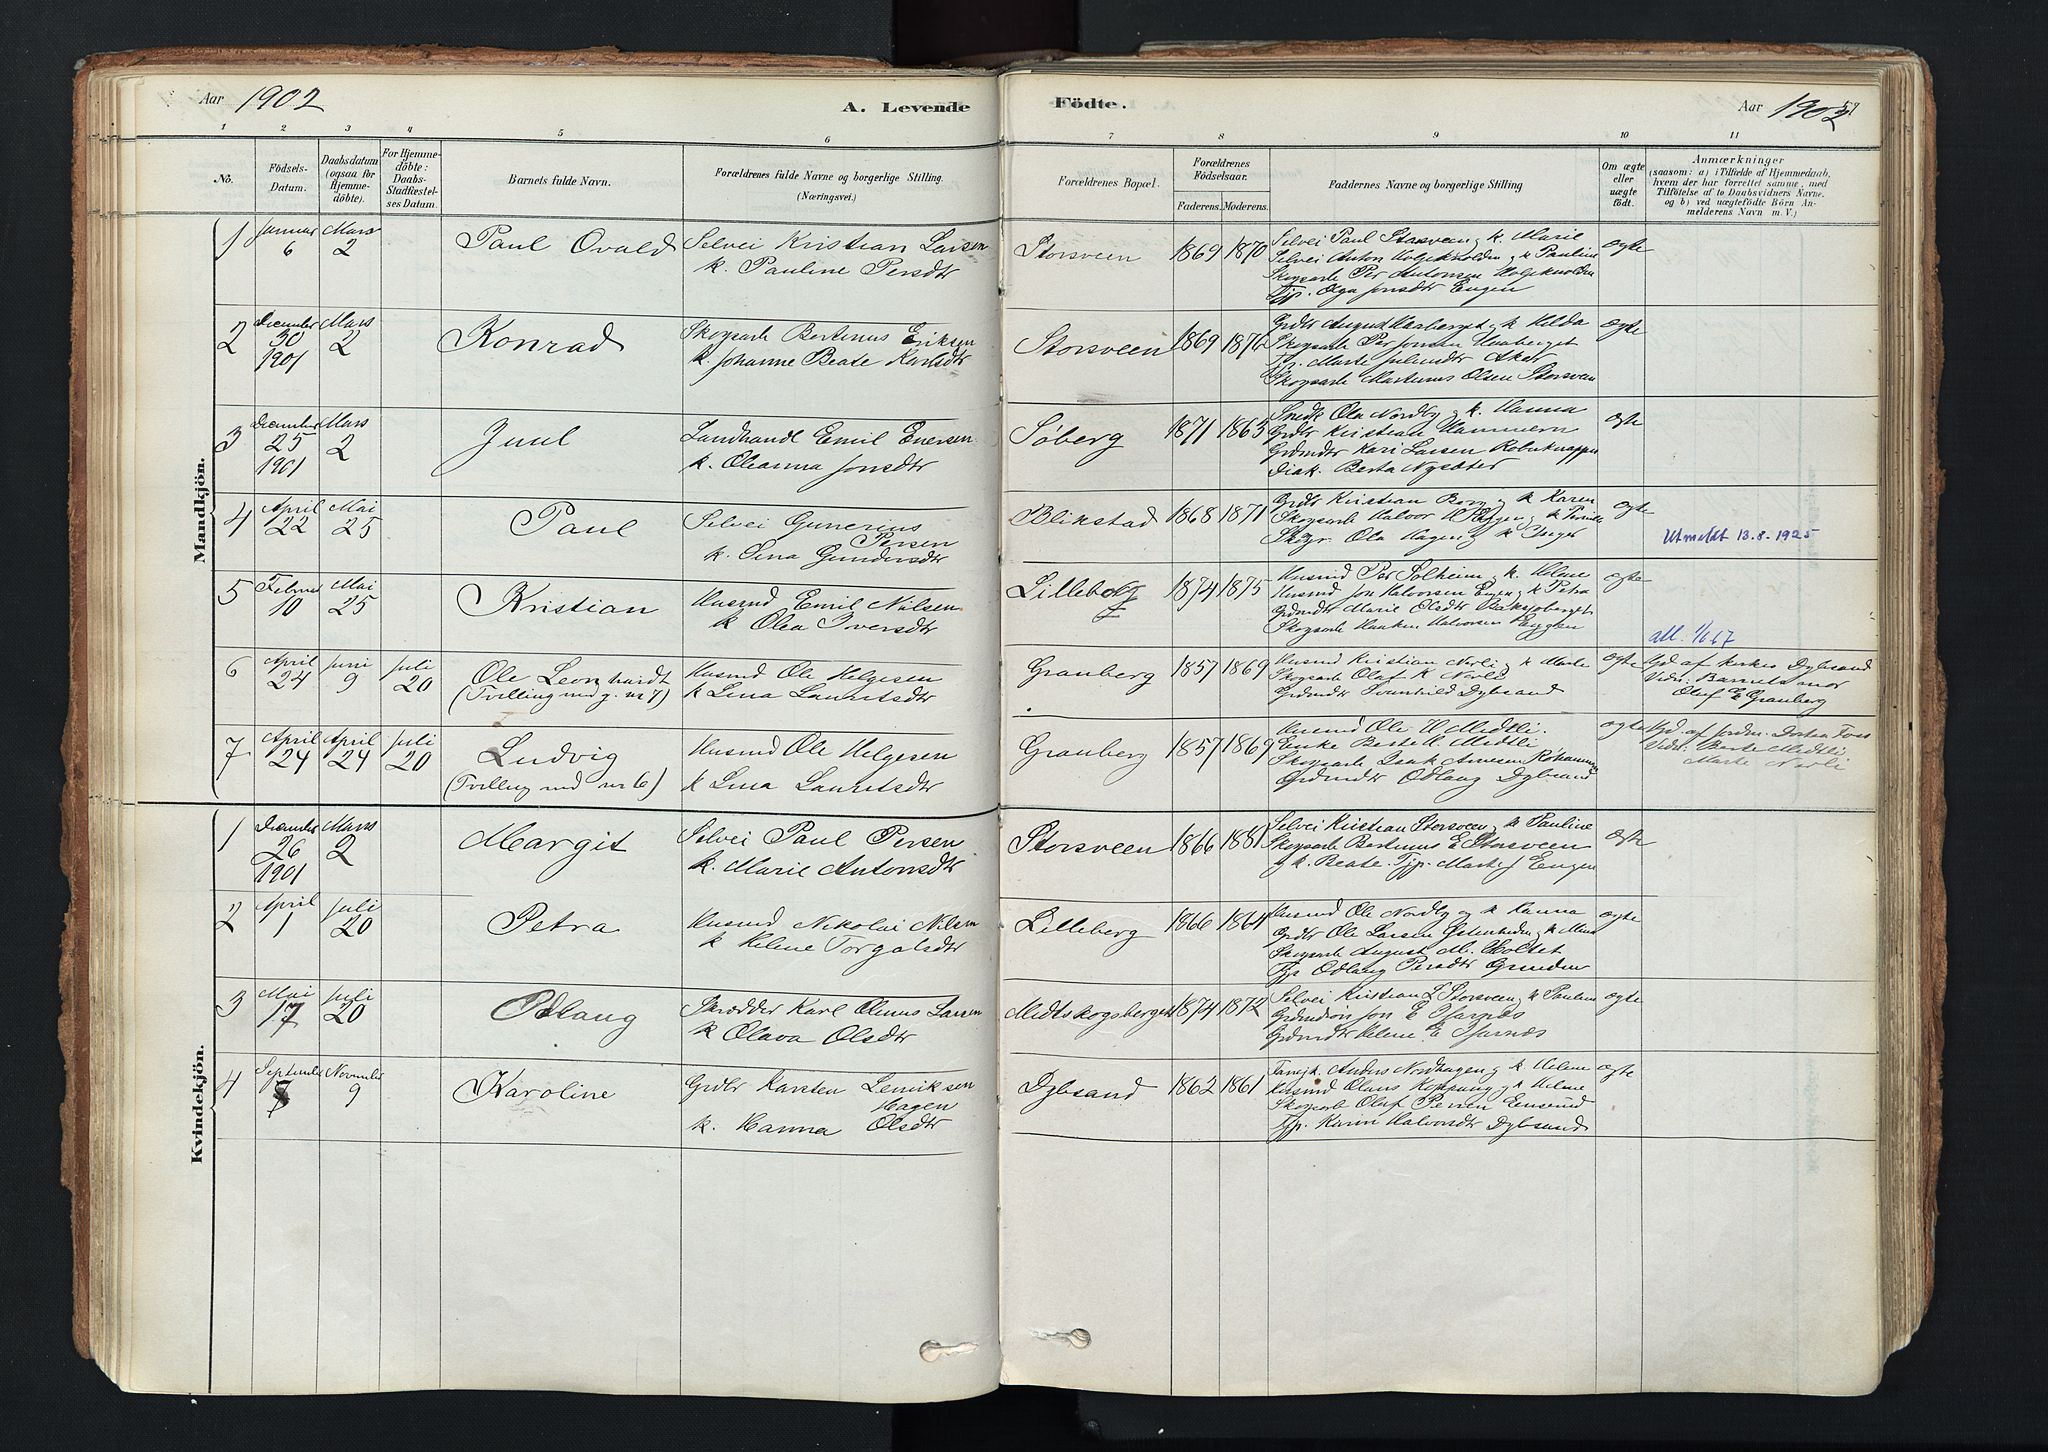 Aar 1902
A. Levende
Födte.
Aar 1902
59
1 2 3 4 5 6 7 8 9 10 11
No.
Födsels-
Datum.
Daabsdatum
(ogsaa for
Hjemme-
döbte).
For Hjemme-
döbte:
Daabs-
Stadfæstel-
ses Datum.
Barnets fulde Navn.
Forældrenes fulde Navne og borgerlige Stilling.
(Næringsvei.)
Forældrenes Bopæl.
Forældrenes
Födselsaar.
Faderens. Moderens.
Faddernes Navne og borgerlige Stilling
Om ægte
eller
uægte
födt.
Anmærkninger
(saasom: a) i Tilfælde af Hjemmedaab,
hvem der har forrettet samme, med
Tilföielse af to Daabsvidners Navne,
og b) ved uægtefödte Börn An-
melderens Navn m. V.)
Mandkjön.
1 Januar 6 Mars 2 Paul Ovald
Selvei Kristian Larsen
k. Pauline Persdtr
Storsveen 1869 1870
Selvei Paul Storsveen, k. Marie
Selvei Anton Holjekholden og k Pauline
Skogsarb Per Antonsen Holjekholden
Tjp. Olga Jonsdtr Engen
ægte
2 December 30 1901 Mars 2 Konrad
Skogsarb Bertinus Eriksen
k. Johanne Beate Karlsdtr
Storsveen 1869 1876
Grdbr August Haaberget, k Hilda
Skogsarb Per Jonsen Haaberget
Tjp. Marte Julinsdtr Aker
Skogsarb Martinus Olsen Storsveen
ægte
3 December 25 1901 Mars 2 Juul
Landhandl Emil Enersen
k. Oleanna Jonsdtr
Söberg 1871 1865
Snedk Ola Nordby og k. Hanna
Grdbr Kristian Hammern
Grdmdtr Kari Larsen
Diak. Berta Nysæter
ægte
4 April 22 Mai 25 Paul
Selvei Gunerius
Persen
k. Sina Gundersdtr
Blikstad 1868 1871
Grdbr Kristian Berg, k Karen
Skogsarb Halvor H Eggen, k Pernille
Skogr Ola Hagen, k Inger
ægte
Utmeldt 13.8.1925
5 Februar 10 Mai 25 Kristian
Husmd Emil Nilsen
k Olea Iversdtr
Lilleberg 1874 1875
Husmd Per Solheim, k. Helene
Husmd Jon Halvorsen Engen, k Petra
Grdmdtr Marie Olsdtr
Skogsarb Haaken Halvorsen Eggen
ægte
att. 1/6 67
6 April 24 Juni 9 Juli 20 Ole Leonhardt
(Tvilling med g. nr 7)
Husmd Ole Helgesen
k Lina Lauritsdtr
Granberg 1857 1869
Husmd Kristian Norli, k Marte
Skogsarb Olaf K Norli
Grdmdtr Svanhild Dybsand
ægte
Hjd af kirkes Dybsand
Vidn: Barnets mor
Oluf E Granberg
7 April 24 April 24 Juli 20 Ludvig
(Tvilling med nr 6)
Husmd Ole Helgesen
k Lina Lauritsdtr
Granberg 1857 1869
Husmd Ole H Medtli.
Enke Berte H Medtli
Skogsarb Isak Arnesen
Grdmdtr Odlaug Dybsand
ægte
Hjd. af jordm. Dortea Foss
Vidn: Berte Medtli
Marte Norli
Kvindekjön.
1 December 26 1901 Mars 2 Margit
Selvei Paul Persen
k. Marie Antonsdtr
Storsveen 1866 1881
Selvei Kristian Storsveen, k Pauline
Skogsarb Bertinus E Storsveen
og k. Beate. Tjp. Marte J Engen
ægte
2 April 1 Juli 20 Petra
Husmd Nikolai Nilsen
k Helene Torgalsdtr
Lilleberg 1866 1864
Husmd Ole Nordby og k Hanna
Grdbr Ole Larsen Österheden, k Mina
Skogsarb August M. Moltet
Tjp Odlaug Persdtr Grinden
ægte
3 Mai 17 Juli 20 Odlaug
Skrædder Karl Olinus Larsen
k Olava Olsdtr
Medtskogsberget 1874 1872
Selvei Kristian L Storsveen, k Pauline
Grdmdsön Jon E Harnæs
Grdmdtr Helene E Harnæs
ægte
4 September November 9 Karoline
Grdbr Karsten Henriksen
Hagen
k. Hanna Olsdtr
Dybsand 1862 1861
Anders Nordhagen, k Helene
Husmd Olaus Koppang, k Helene
Skogsarb Oluf Persen Ensrud
Tjp. Karen Halvorsdtr Dybsand
ægte